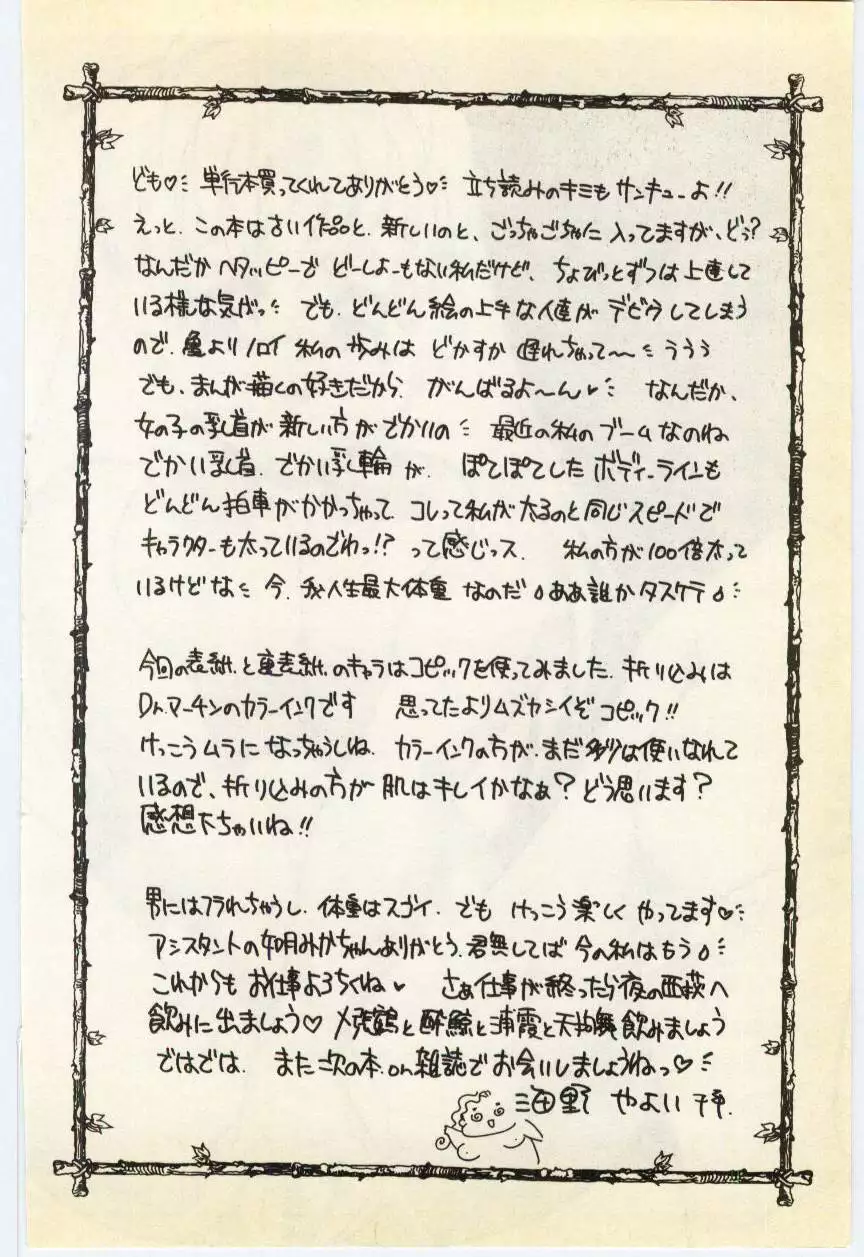 ども♡ 単行本買ってくれてありがとう♡ 立ち読みのキミも サンキューよ!!
えっと、この本は古い作品と、新しいのと、ごっちゃごちゃに 入ってますが、どぅ?
なんだか ヘタッピーで どーしよーもない私だけど、ちょびっとずつは上達して
いる様な気がっ でも、どんどん絵の上手な人達が デビウしてしまう
ので、亀よりノロイ 私の歩みは どかすか 遅れちゃって〜 ううう
でも、まんが描くの好きだから、がんばるよ〜ん♥ なんだか、
女の子の乳首が 新しい方がでかいの 最近の私のブームなのね
でかい乳首、でかい乳輪が、 ぽてぽてした ボディーラインも
どんどん拍車がかかっちゃって、コレって私が太るのと同じスピードで
キャラクターも太っているのでわっ!? って感じっス、 私の方が100倍太って
いるけどな 今、我人生最大体重 なのだ ああ誰かタスケテ
今回の表紙と裏表紙のキャラはコピックを使ってみました、折り込みは
Dr.マーチンのカラーインクです 思ってたよりムズカシイぞ コピック!!
けっこうムラになっちゃうしね、カラーインクの方が、まだ多少は使いなれて
いるので、折り込みの方が 肌はキレイかなぁ? どう思います?
感想下ちゃいね!!
男にはフラれちゃうし、体重はスゴイ、でも けっこう楽しく やってます♡
アシスタントの如月みかちゃんありがとう、君無しでは 今の私はもう
これからも お仕事よろちくね♥ さぁ仕事が終ったら夜の西荻へ
飲みに出ましょう♡ 〆張鶴と酔鯨と浦霞と天狗舞 飲みましょう
ではでは、また次の本、on雑誌で お会いしましょうねっ♡
海野 やよい 拝.